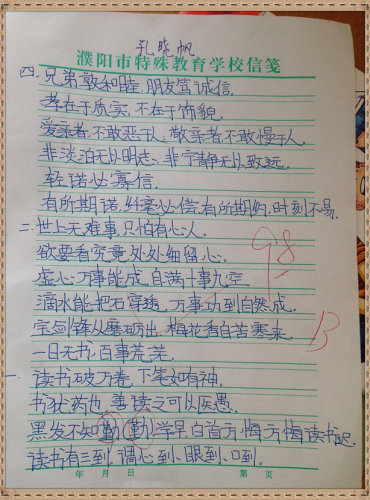 孔晓帆
濮阳市特殊教育学校信笺
四.兄弟敦和睦,朋友笃诚信.
孝在于质实,不在于饰貌.
爱亲者,不敢恶于人,敬亲者,不敢慢于人.
非淡泊无以明志,非宁静无以致远.
轻诺必寡信.
有所期诺,纤毫必偿,有所期约,时刻不易.
二.世上无难事,只怕有心人.
欲要看究竟,处处细留心.
虚心万事能成,自满十事九空.
滴水能把石穿透,万事功到自然成.
宝剑锋从磨砺出,梅花香自苦寒来.
一日无书,百事荒芜.
一.读书破万卷,下笔如有神.
书犹药也,善读之可以医愚.
黑发不知勤勤学早,白首方悔方悔读书迟.
读书有三到,谓心到、眼到、口到.
98
B
年 月 日 第 页